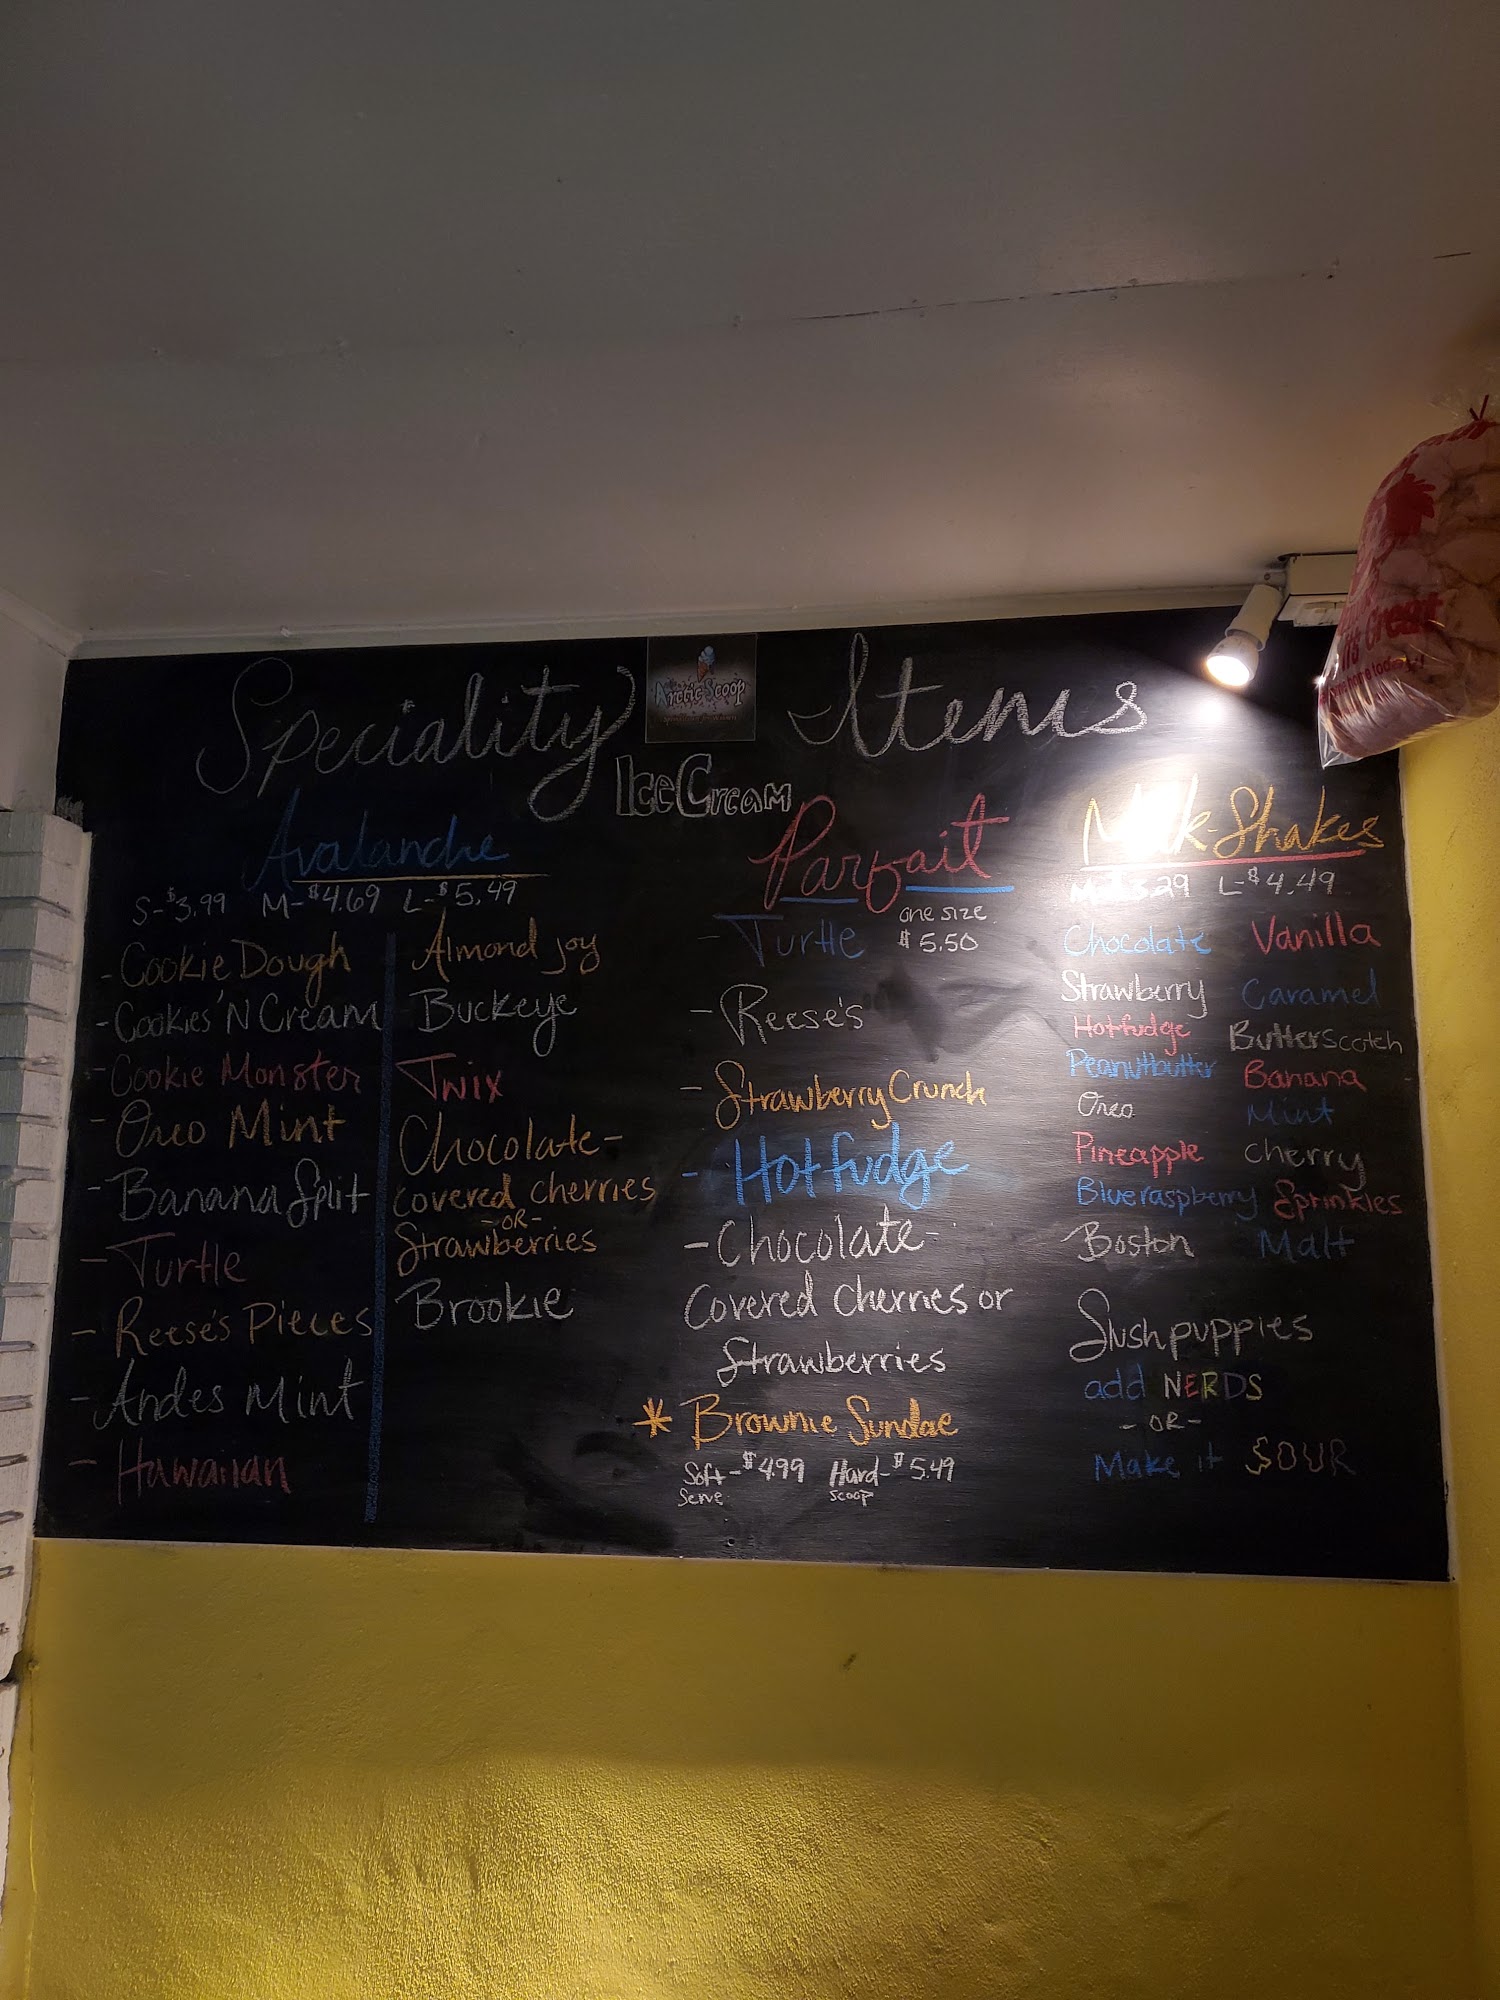 Speciality Items
Arctic Scoop
Ice Cream
Avalanche
S-$3.99 M-$4.69 L-$5.49
- Cookie Dough
- Cookies 'N Cream
- Cookie Monster
- Oreo Mint
- Banana Split
- Turtle
- Reese's Pieces
- Andes Mint
- Hawaiian
Almond joy
Buckeye
Twix
Chocolate-
covered cherries
-OR-
Strawberries
Brookie
Parfait
one size
$5.50
- Turtle
- Reese's
- Strawberry Crunch
- Hot fudge
- Chocolate-
Covered Cherries or
Strawberries
* Brownie Sundae
Soft-$4.99 Hard-$5.49
Serve scoop
Milk-Shakes
M-$3.29 L-$4.49
Chocolate Vanilla
Strawberry Caramel
Hotfudge Butterscotch
Peanutbutter Banana
Oreo Mint
Pineapple cherry
Blueraspberry Sprinkles
Boston Malt
Slushpuppies
add NERDS
-OR-
Make it SOUR